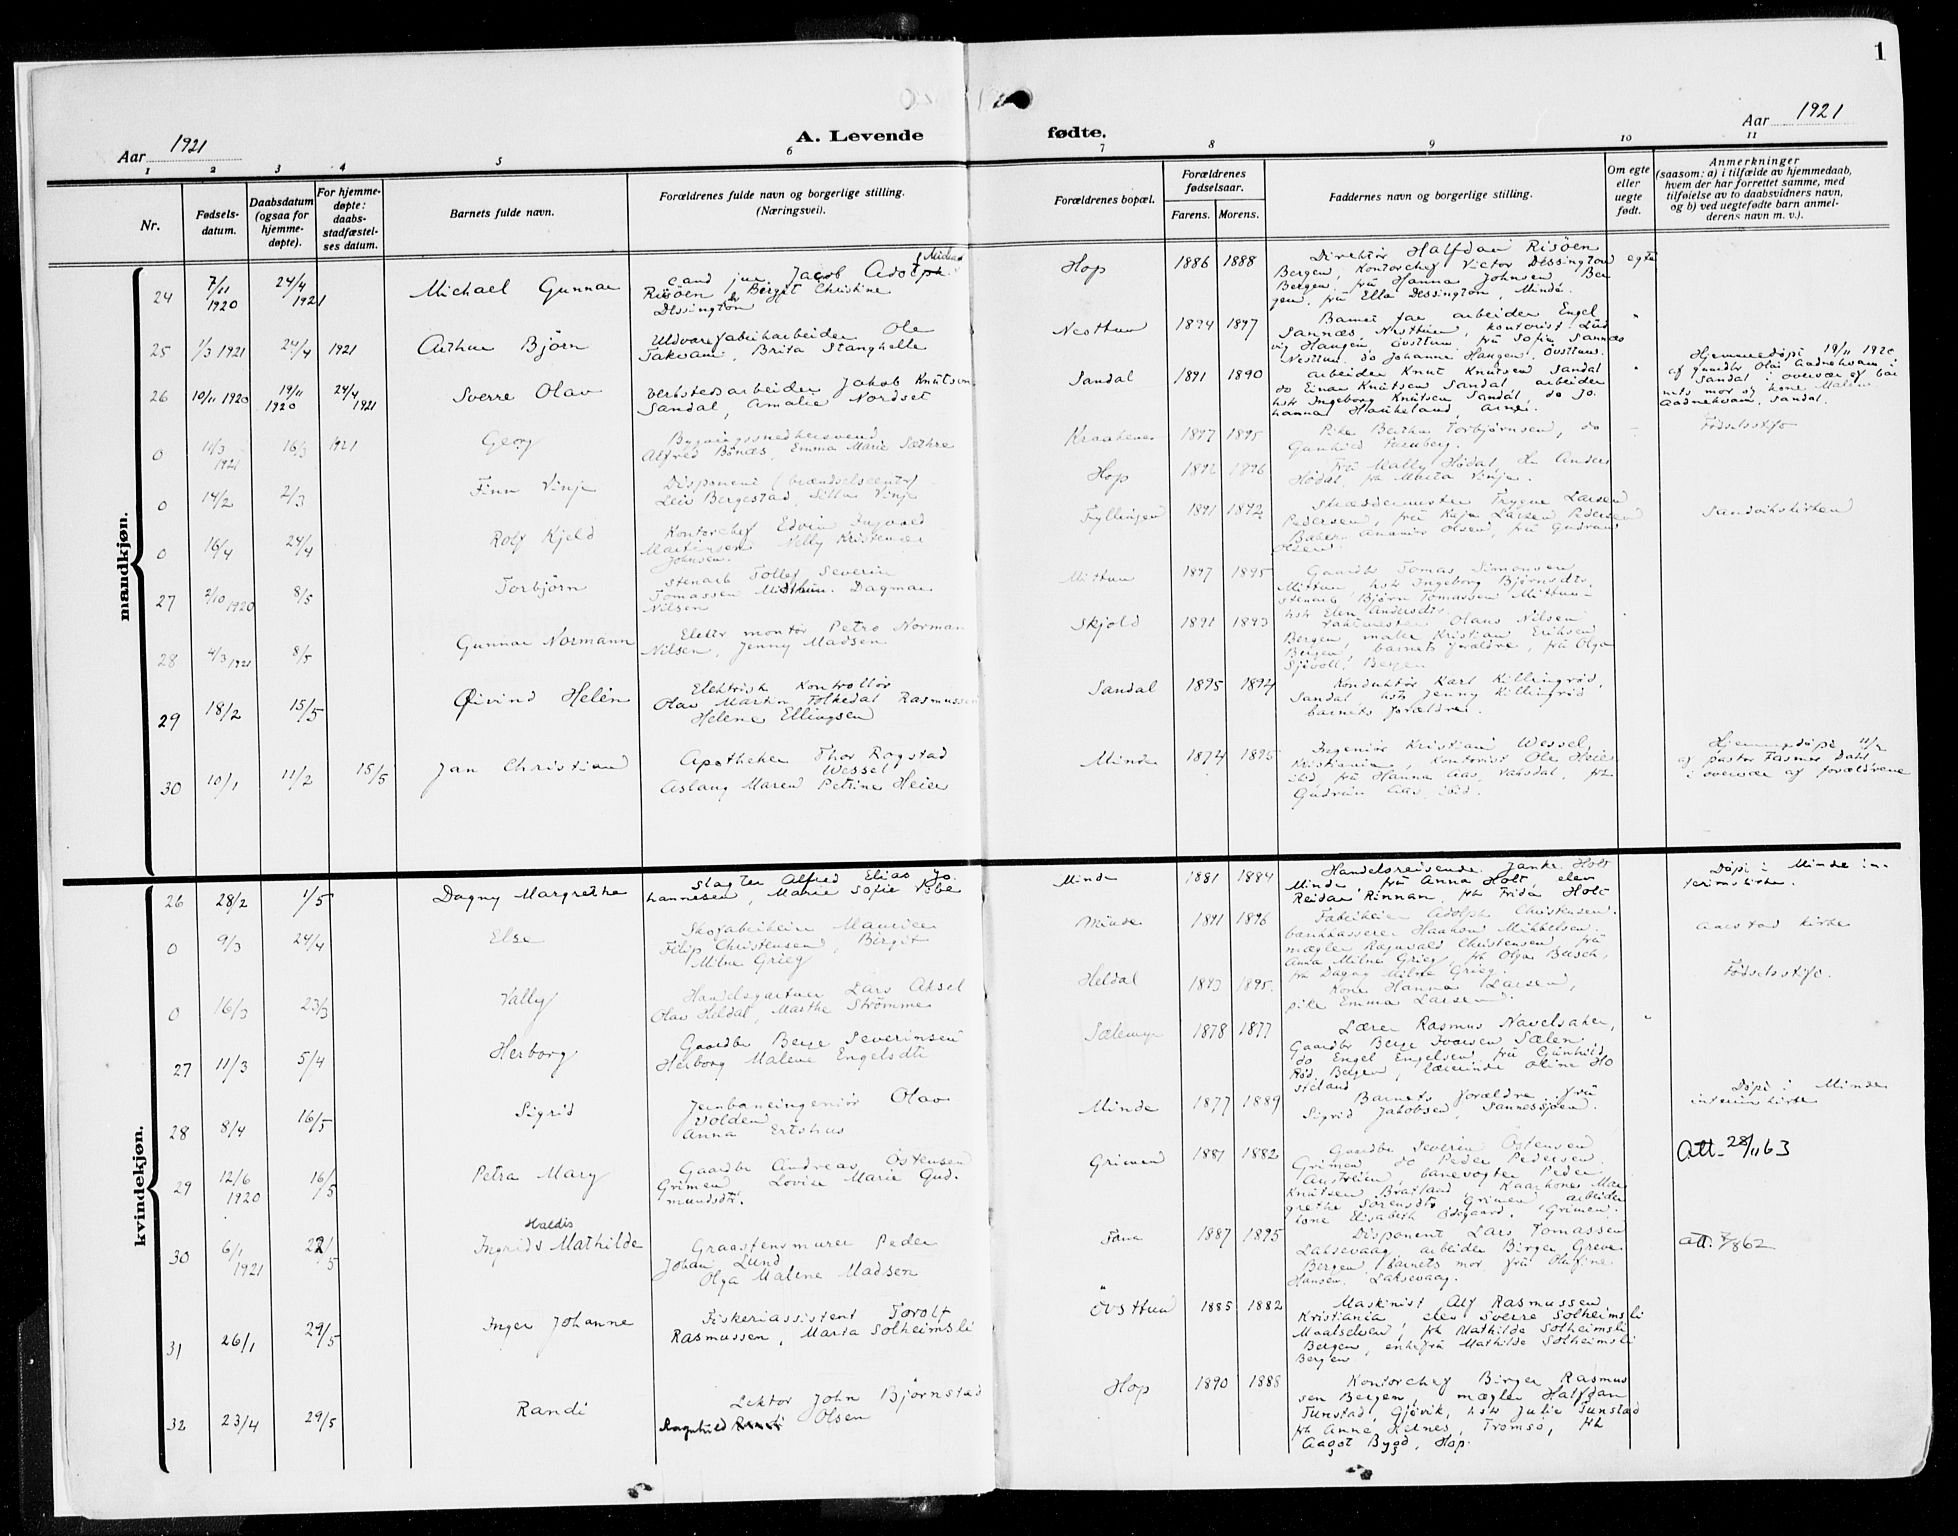 1
Aar 1921
A. Levende fødte.
Aar 1921
1 2 3 4 5 6 7 8 9 10 11
Nr.
Fødsels-
datum.
Daabsdatum
(ogsaa for
hjemme-
døpte).
For hjemme-
døpte:
daabs-
stadfæstel-
ses datum.
Barnets fulde navn.
Forældrenes fulde navn og borgerlige stilling.
(Næringsvei).
Forældrenes bopæl.
Forældrenes
fødselsaar.
Farens. Morens.
Faddernes navn og borgerlige stilling.
Om egte
eller
uegte
født.
Anmerkninger
(saasom: a) i tilfælde av hjemmedaab,
hvem der har forrettet samme, med
tilføielse av to daabsvidners navn,
og b) ved uegtefødte barn anmel-
derens navn m. v.).
mandkjøn.
24 7/11 1920 24/4 1921 Michael Gunnar
Cand jur Jacob Adolph Michael
Risöen, Birgit Christine
Dessington
Hop 1886 1888
Direktör Halfdan Risöen
Bergen, Kontorchef Victor Dessington
Bergen, frü Hanna Johnsen, Ber
gen, frü Ella Dessington, Minde.
egte
25 1/3 1921 24/4 1921 Arthur Björn
Uldvarefabrikarbeider Ole
Takvam, Brita Stanghelle
Nesttun 1894 1897
Barnets far arbeider Engel
Sannæs, Nesttun, kontorist Lud
vig Haugen Övsttun, frü Sofie Sannæs
Nesttun, do Johanne Haugen, Övsttun.
26 10/11 1920 19/11 1920 24/4 1921 Sverre Olav
Verkstedsarbeider Jakob Knutsen
Sandal, Amalie Nordset
Sandal 1891 1890
arbeider Knut Knutsen Sandal
do Einar Knutsen Sandal, arbeider
hstr Ingeborg Knutsen Sandal, do Jo
hanna Haukeland, Arne.
Hjemmedøpt 19/11 1920
af gaardbr Olai Aadnekvam i
Sandal i overvær af bar
nets mor og kone Malene
Aadnekvam, Sandal.
0 11/3 1921 16/3 1921 Georg
Bygningssnedkersvend
Alfred Bönæs, Emma Marie Sæthre
1897 1895
Pike Bertha Torbjørnsen, do
Gunhild
Fødselsstift
0 14/2 2/3 Finn Vinje
Disponent (brændselscentr)
Leiv Bergestad, Vinje
Hop 1892 1896
Frü Mally Hödal, hr Anders
Hödal, frk Marta Vinje.
0 16/4 24/4 Rolf Kjeld
Kontorchef Edvin Ingvald
Martinsen Nelly Kristense
Johnsen.
Fyllingen 1891 1892
Skræddermester Trygve Larsen
Pedersen, frü Kaja Larsen Pedersen
Ananias Olsen, frü Gudrun
Olsen
Sandvikskirken
27 2/10 1920 8/5 Torbjörn
Stenarb Tollef Severin
Tomassen Midttun. Dagmar
Nilsen
Mittun 1897 1895
Gaardbr Tomas Simonsen
Mittun, hstr Ingeborg Björnsdtr
stenarb Björn Tomassen Mittun
hstr Elen Andersdtr.
28 4/3 1921 8/5 Gunnar Normann
Elektr montör Petro Norman
Nilsen, Jenny Madsen
Skjold 1891 1893
Olaus Nilsen
Bergen, maler Kristian Eriksen
Bergen, barnets forældre, frü Olga
Bergen
29 18/2 15/5 Öivind Helén
Elektrisk Kontrollör
Olav Martin Folkedal Rasmussen
Helene Ellingsen
Sandal 1895 1894
Konduktör Karl Killingrød,
Sandal hstr Jenny Killingrød
barnets forældre.
30 10/1 11/2 15/5 Jan Christian
Apotheker Thor Rogstad
Wessel
Aslaug Maren Petrine Heier
Minde 1874 1895
Ingeniør Kristian Wessel,
Kristiania, Kontorist Ole Heier
ibid, frü Hanna Aas, Vaksdal, frk
Gudrun Aas, ibid.
Hjemmedøpt 11/2
af pastor Fasmer Dahl
i overvær af forældrene
kvindekjøn.
26 28/2 1/5 Dagny Margrethe
Slagter Alfred Elias Jo.
hannesen, Marie Sofie Vibe
Minde 1881 1884
Handelsreisende Janke Holt
Minde, frü Anna Holt, elev
Reidar Rinnan, frk Frida Holt
Døpt i Minde in-
terimskirke.
0 9/3 24/4 Else
Skofabrikeier Maurice
Filip Christensen, Birgit
Milne Grieg
Minde 1891 1896
Fabrikeier Adolph Christensen.
bankkasserer Haakon Mikkelsen
mægler Ragnvald Christensen, frü
Anna Milne Grieg, frk Olga Busch,
frk Dagny Milne Grieg.
Aarstad kirke
0 16/3 23/3 Vally
Handelsgartner Lars Aksel
Olav Heldal, Marthe Strömme
Heldal 1893 1895.
Kone Hanna Larsen,
pike Emma Larsen.
Fødselsstift.
27 11/3 5/4 Herborg
Gaardbr Berge Severinsen
Herborg Malene Engelsdtr
Sælen 1878 1877
Lærer Rasmus Navelsaker,
Gaardbr Berge Ivarsen Sælen
do Engel Engelsen, frü Gunhild
Bergen, lærerinde Oline Ho
28 8/4 16/5 Sigrid
Jernbaneingeniör Olav
Volden
Anna Ertshus
Minde 1877 1889
Barnets forældre frü
Sigrid Jakobsen, Sannessjöen.
Døpt i Minde
interimskirke
29 12/6 1920 16/5 Petra Mary
Gaardbr Andreas Östensen
Grimen Lovise Marie Gud.
mundsdtr
Grimen 1881 1882
Gaardbr Severin Östensen
Grimen, do Peder Pedersen
banevogter Peder
Knutsen Bratland, Kaarhones Mar
grethe Sörensdtr Grimen, arbeider
kone Elisabeth Ödegaard, Grimen.
Att. 28/11 63
30 6/1 1921 22/5 Ingrids Haldis Mathilde
Graastensmurer Peder
Johan Lund
Olga Malene Madsen
Fane 1887 1895
Disponent Lars Tomassen
Laksevaag, arbeider Birger Greve
Bergen, barnets mor, frü Olufine
Hansen, Laksevaag.
Att. 7/8 62
31 26/1 29/5 Inger Johanne
Fiskeriassistent Torolf
Rasmussen, Marta Solheimsli
Övsttun 1885 1882
Maskinist Alf Rasmussen
Kristiania elev Sverre Solheimsli
Maalselven, frk Mathilde Solheimsli
Bergen, enkefrü Mathilde Solheimsli
Bergen
32 23/4 29/5 Randi
Lektor John Björnstad
Ragnhild Olsen
Hop 1890 1888
Kontorchef Birger Rasmus
sen Bergen, mægler Halfdan
Tunstad, Gjövik, hstr Julie Tunstad
frk Anne Helnes, Tromsö, frk
Aagot Bygd, Hop.